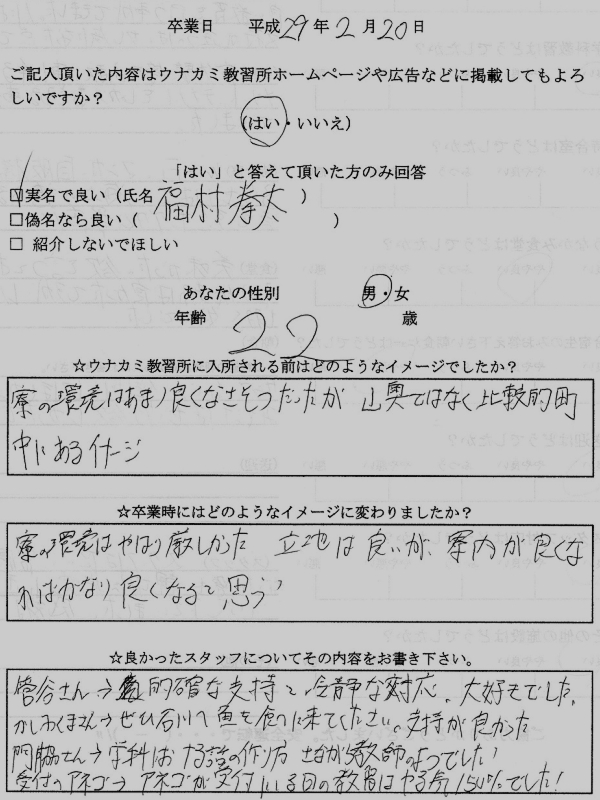 卒業日 平成29年2月20日
ご記入頂いた内容はウナカミ教習所ホームページや広告などに掲載してもよろ
しいですか?
(はい・いいえ)
「はい」と答えて頂いた方のみ回答
☑実名で良い(氏名 福村拳太 )
□偽名なら良い( )
□ 紹介しないでほしい
あなたの性別 男・女
年齢 22 歳
☆ウナカミ教習所に入所される前はどのようなイメージでしたか?
寮の環境はあまり良くなさそうだったが 山奥ではなく比較的町
中にあるイメージ
☆卒業時にはどのようなイメージに変わりましたか?
寮の環境はやはり厳しかった 立地は良いが、案内が良くな
ればかなり良くなると思う
☆良かったスタッフについてその内容をお書き下さい。
菅谷さん→ 的確な支持と冷静な対応。大好きでした。
かしわくまさん→ぜひ石川へ魚を食いに来てください。支持が良かった
門脇さん→学科は さながら教師のようでした
受付のアネゴ→アネゴが受付にいる日の教習はやる気150%でした!